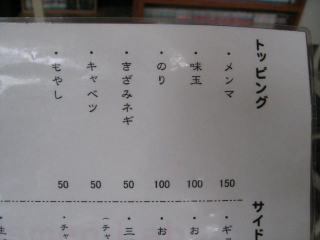 トッピング
・メンマ 150
・味玉 100
・のり 100
・きざみネギ 50
・キャベツ 50
・もやし 50
サイド
・ギ
・お
・お
・三
（チャ
・チャ
・生